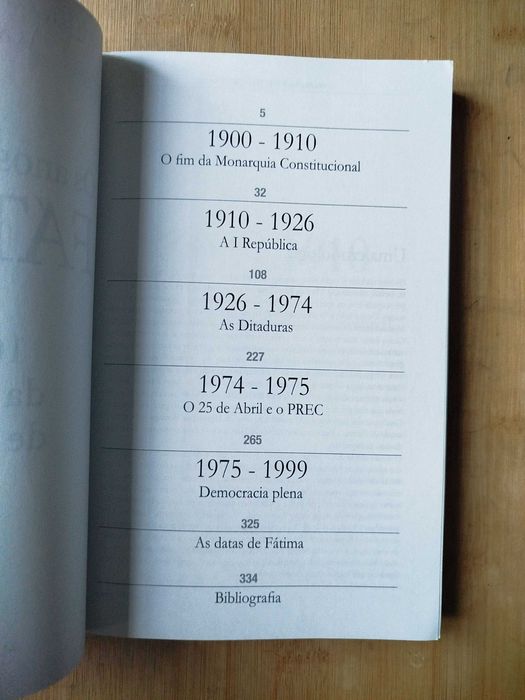 5
1900 - 1910
O fim da Monarquia Constitucional
32
1910 - 1926
A I República
108
1926 - 1974
As Ditaduras
227
1974 - 1975
O 25 de Abril e o PREC
265
1975 - 1999
Democracia plena
325
As datas de Fátima
334
Bibliografia